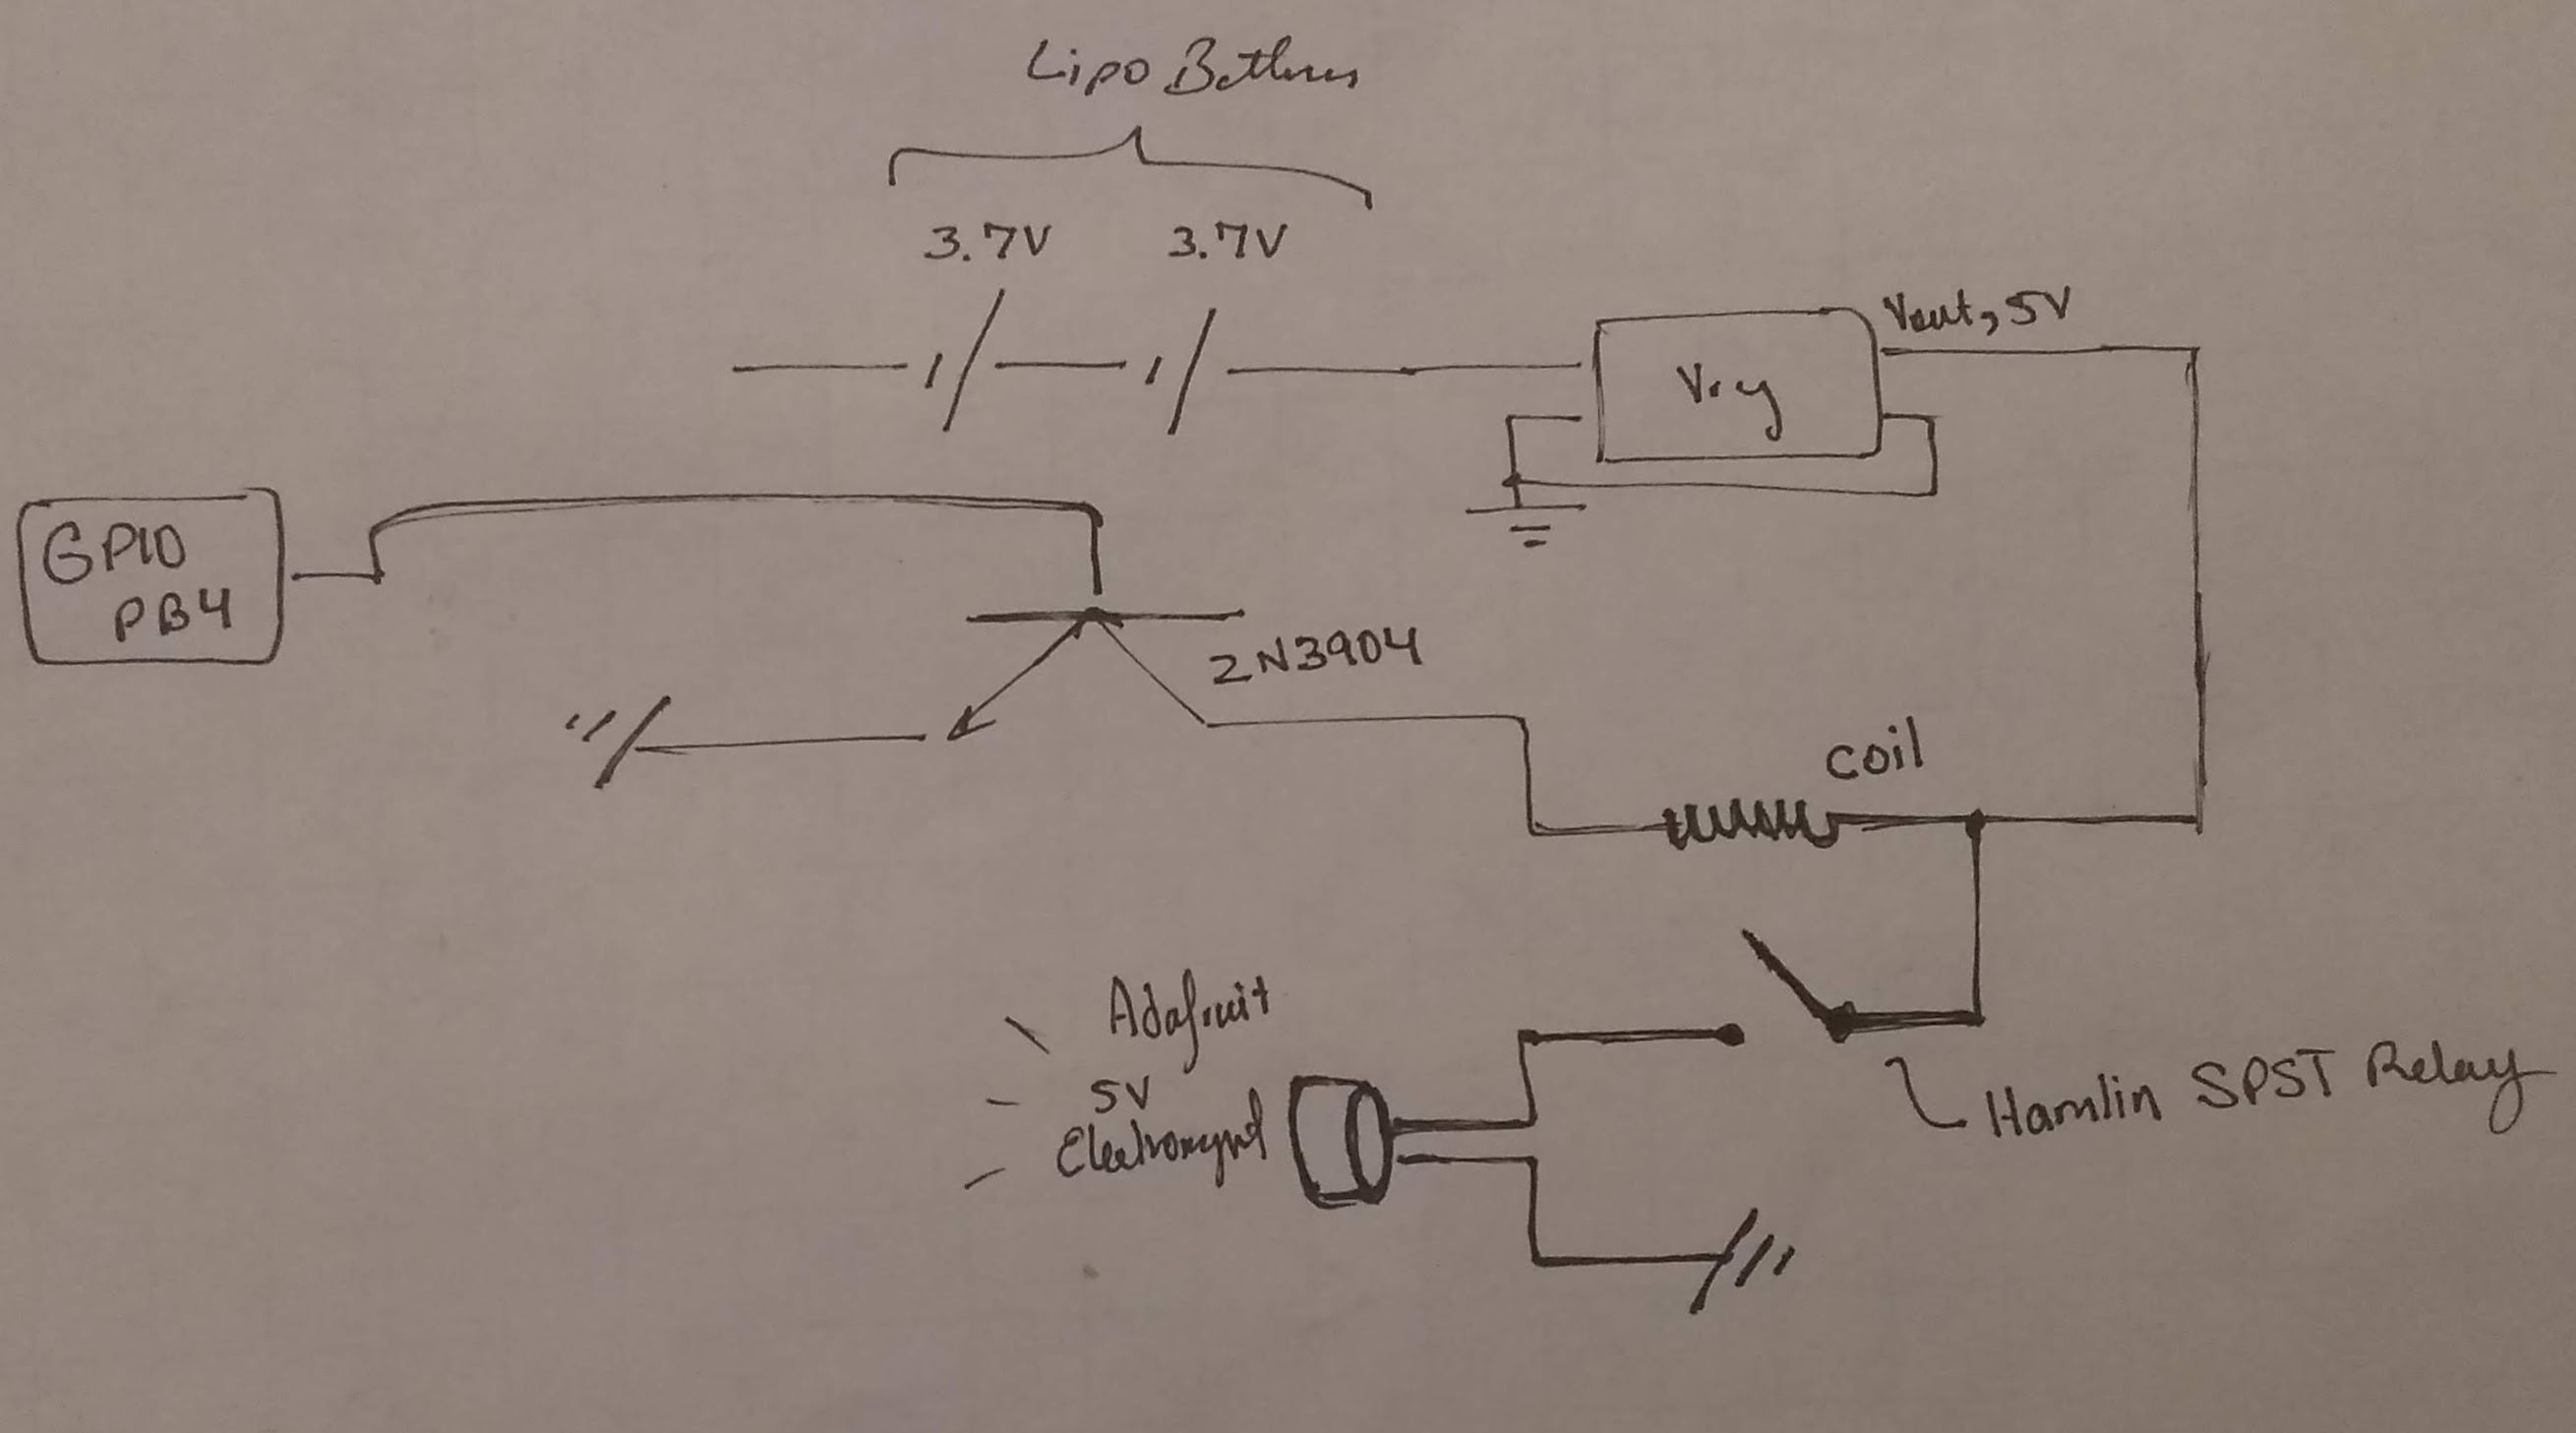 Lipo Batteries
3.7V 3.7V
Vout, 5V
Vreg
GPIO
PB4
2N3904
coil
Adafruit
5V
Electromagnet
Hamlin SPST Relay